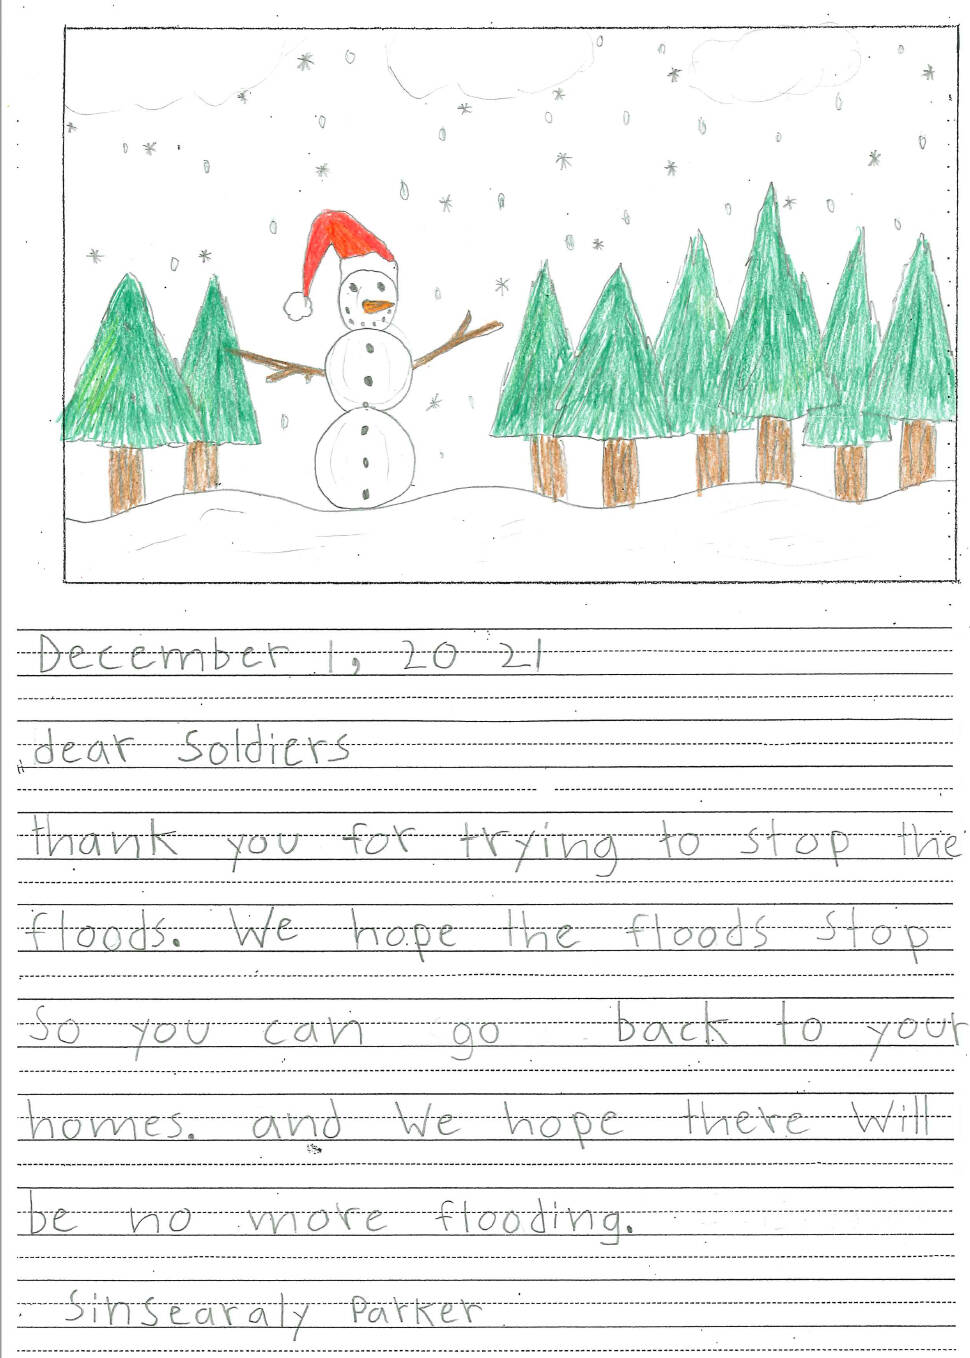 December 1, 20 21
dear Soldiers
thank you for trying to stop the
floods. We hope the floods stop
so you can go back to your
homes. and We hope there will
be no more flooding.
Sinsearaly Parker